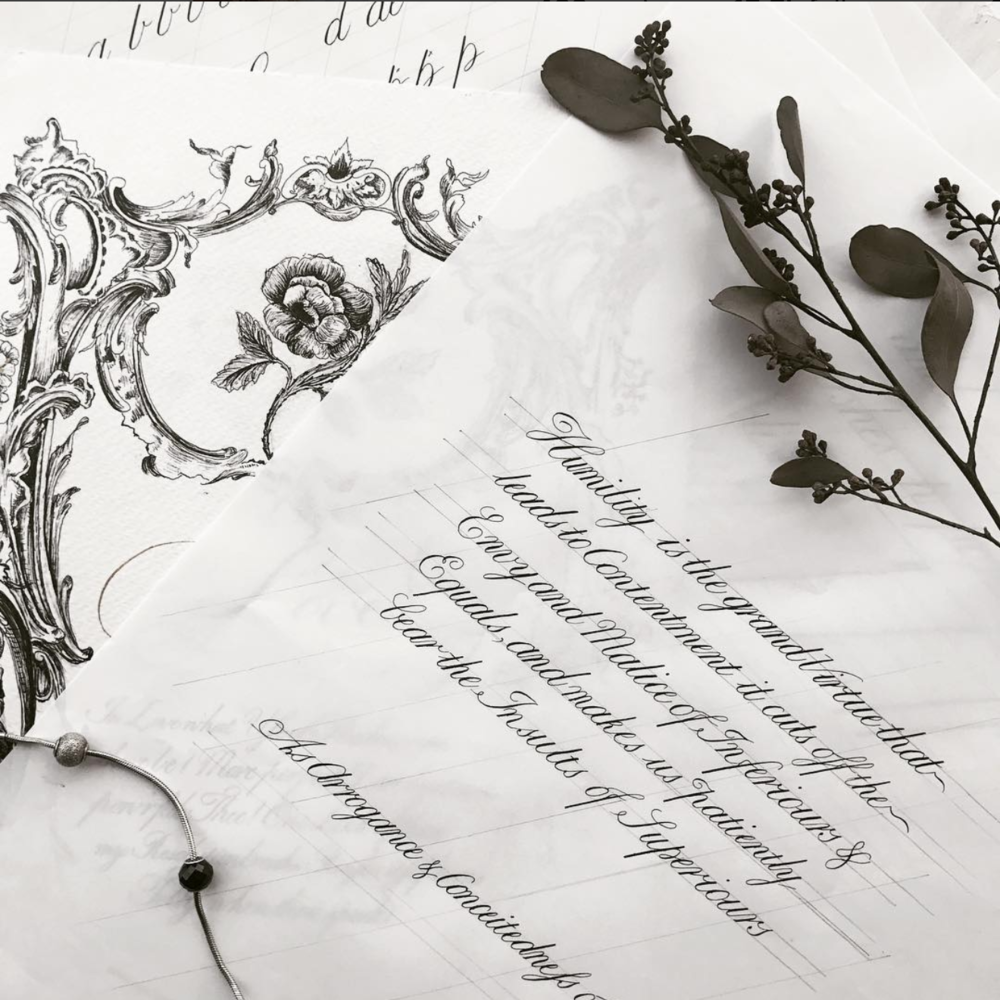 a b b b d d
p p p
Humility is the grand Virtue that
leads to Contentment it cuts off the
Envy and Malice of Inferiours &
Equals, and makes us patiently
bear the Insults of Superiours
As Arrogance & Conceitedneſs